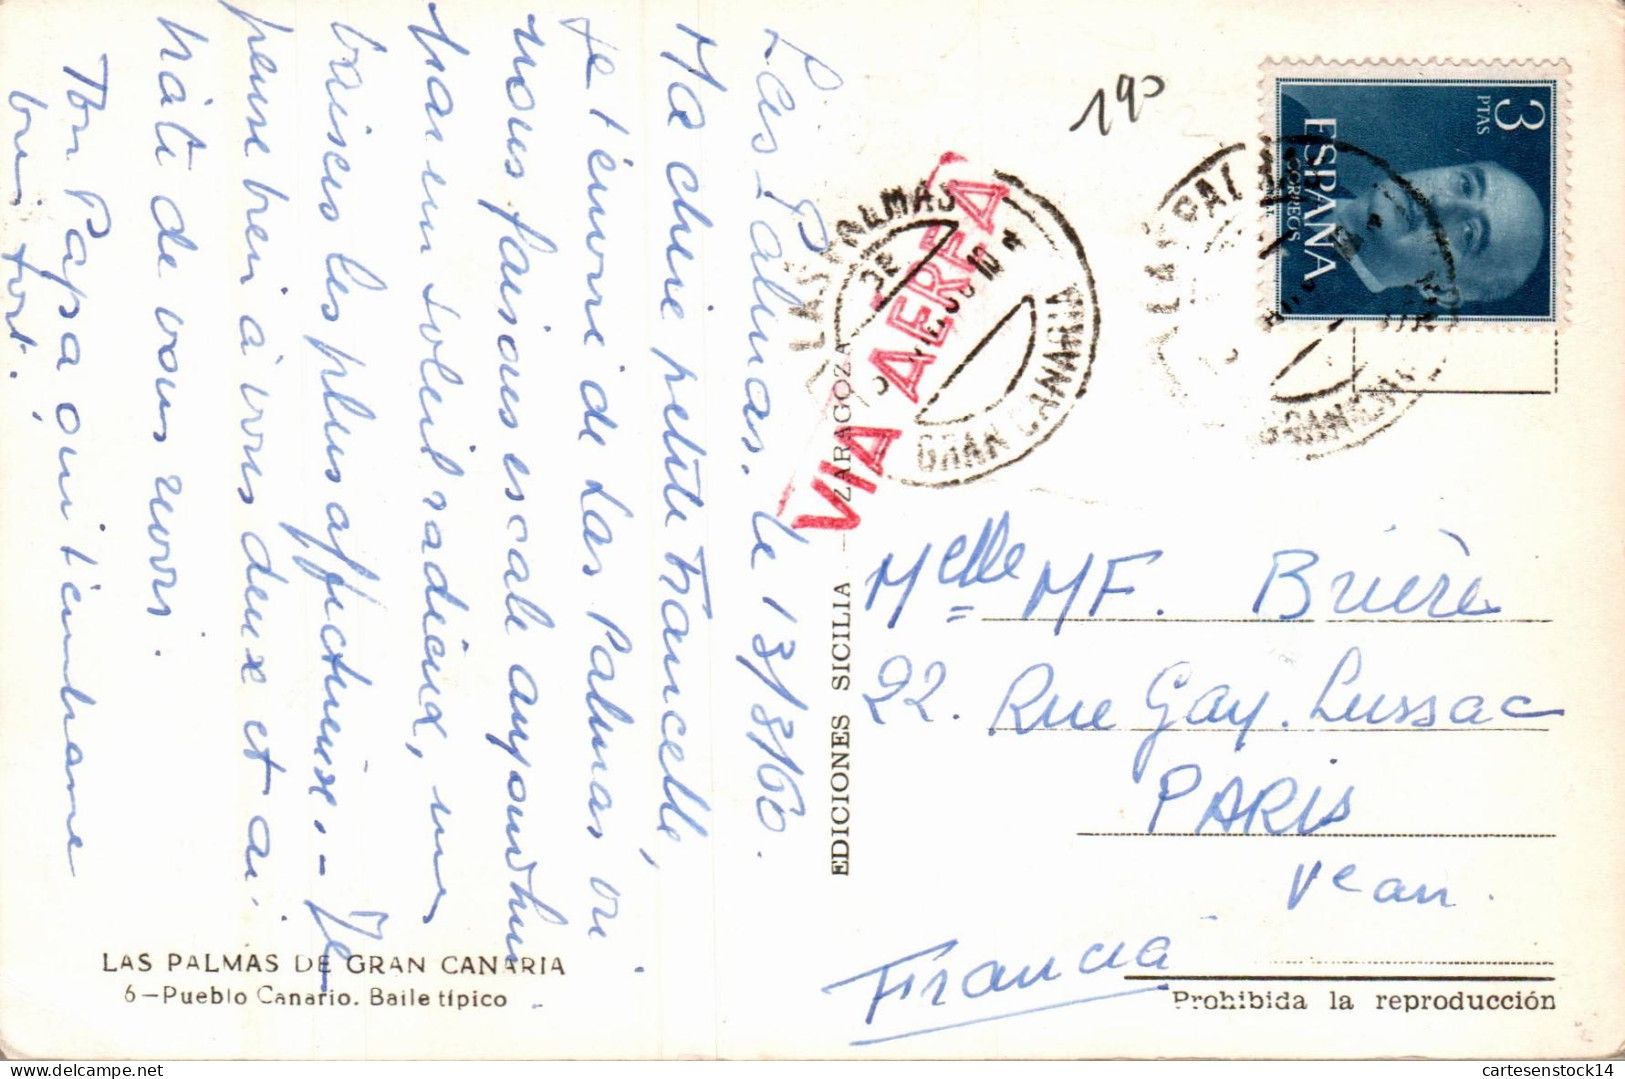 Las-Palmas. le 13/8/60.
Ma chère petite Francette,
Je t'envoie de Las Palmas où
nous faisons escale aujourd'hui
par un soleil radieux, mes
baisers les plus affectueux. - Je
pense bien à vous deux et ai
hâte de vous revoir.
Ton Papa qui t'embrasse
bien fort.
LAS PALMAS DE GRAN CANARIA
6-Pueblo Canario. Baile típico
EDICIONES SICILIA - ZARAGOZA
190
3
PTAS
ESPAÑA
CORREOS
LAS PALMAS
DE
GRAN CANARIA
VIA AEREA
LAS PALMAS
GRAN CANARIA
Melle MF. Brière
22. Rue Gay. Lussac
PARIS
Ve arr.
Francia
Prohibida la reproducción
cartesenstock14